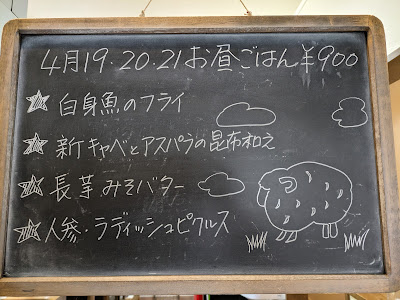 4月19.20.21お昼ごはん¥900
☆白身魚のフライ
☆新キャベとアスパラの昆布和え
☆長芋みそバター
☆人参・ラディッシュピクルス